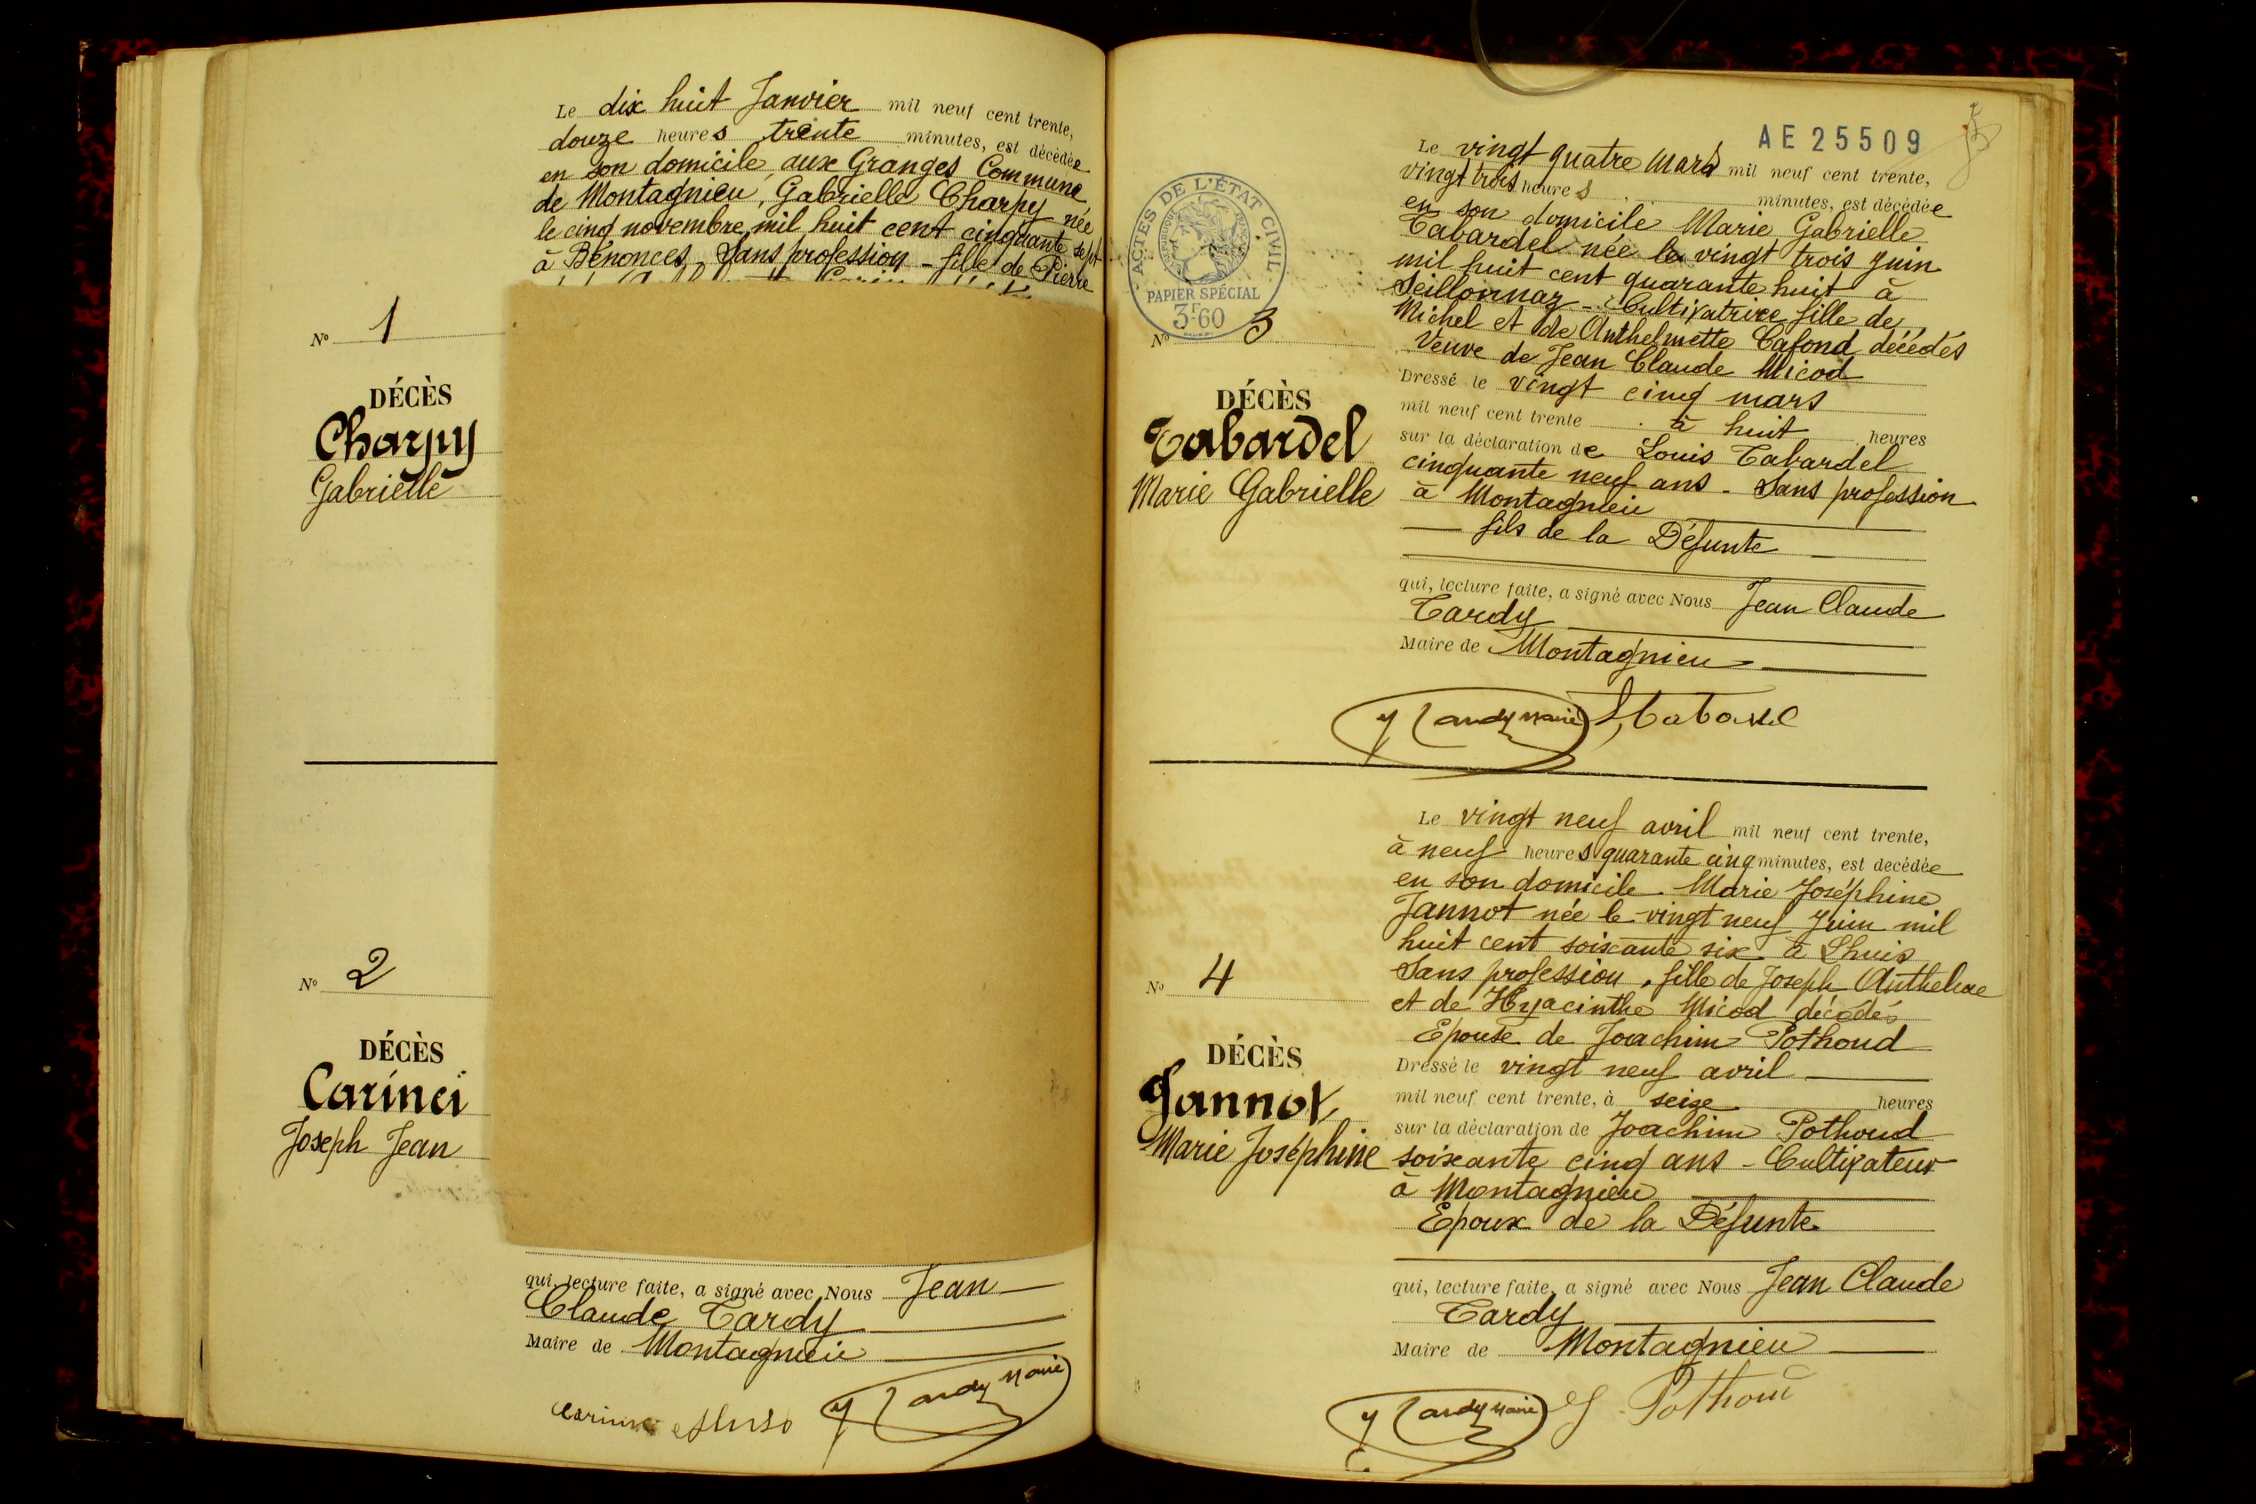 Le dix huit Janvier mil neuf cent trente,
douze heures trente minutes, est décédée
en son domicile, aux Granges Commune
de Montagnieu, Gabrielle Charpy née
le cinq novembre mil huit cent cinquante sept
à Bénonces, Sans profession - fille de Pierre
No 1
DÉCÈS
Charpy
Gabrielle
No 2
DÉCÈS
Carinci
Joseph Jean
qui, lecture faite, a signé avec Nous Jean
Claude Tardy
Maire de Montagnieu
Tardy Maire
AE 25509
ACTES DE L'ÉTAT CIVIL
PAPIER SPÉCIAL
3F60
No 3
DÉCÈS
Tabardel
Marie Gabrielle
Le vingt quatre Mars mil neuf cent trente,
vingt trois heures minutes, est décédée
en son domicile Marie Gabrielle
Tabardel née le vingt trois Juin
mil huit cent quarante huit à
Seillonnaz - Cultivatrice fille de
Michel et de Anthelmette Cafond décédés
Veuve de Jean Claude Micod
Dressé le vingt cinq mars
mil neuf cent trente à huit heures
sur la déclaration de Louis Tabardel
cinquante neuf ans - Sans profession
à Montagnieu
fils de la Défunte
qui, lecture faite, a signé avec Nous Jean Claude
Tardy
Maire de Montagnieu
Tardy Maire
No 4
DÉCÈS
Jannot
Marie Joséphine
Le vingt neuf avril mil neuf cent trente,
à neuf heures quarante cinq minutes, est décédée
en son domicile Marie Joséphine
Jannot née le vingt neuf Juin mil
huit cent soixante six à Lhuis
Sans profession, fille de Joseph Anthelme
et de Hyacinthe Micod décédés
Epouse de Joachim Pothoud
Dressé le vingt neuf avril
mil neuf cent trente, à seize heures
sur la déclaration de Joachim Pothoud
soixante cinq ans - Cultivateur
à Montagnieu
Epoux de la Défunte
qui, lecture faite, a signé avec Nous Jean Claude
Tardy
Maire de Montagnieu
Tardy Maire J Pothoud